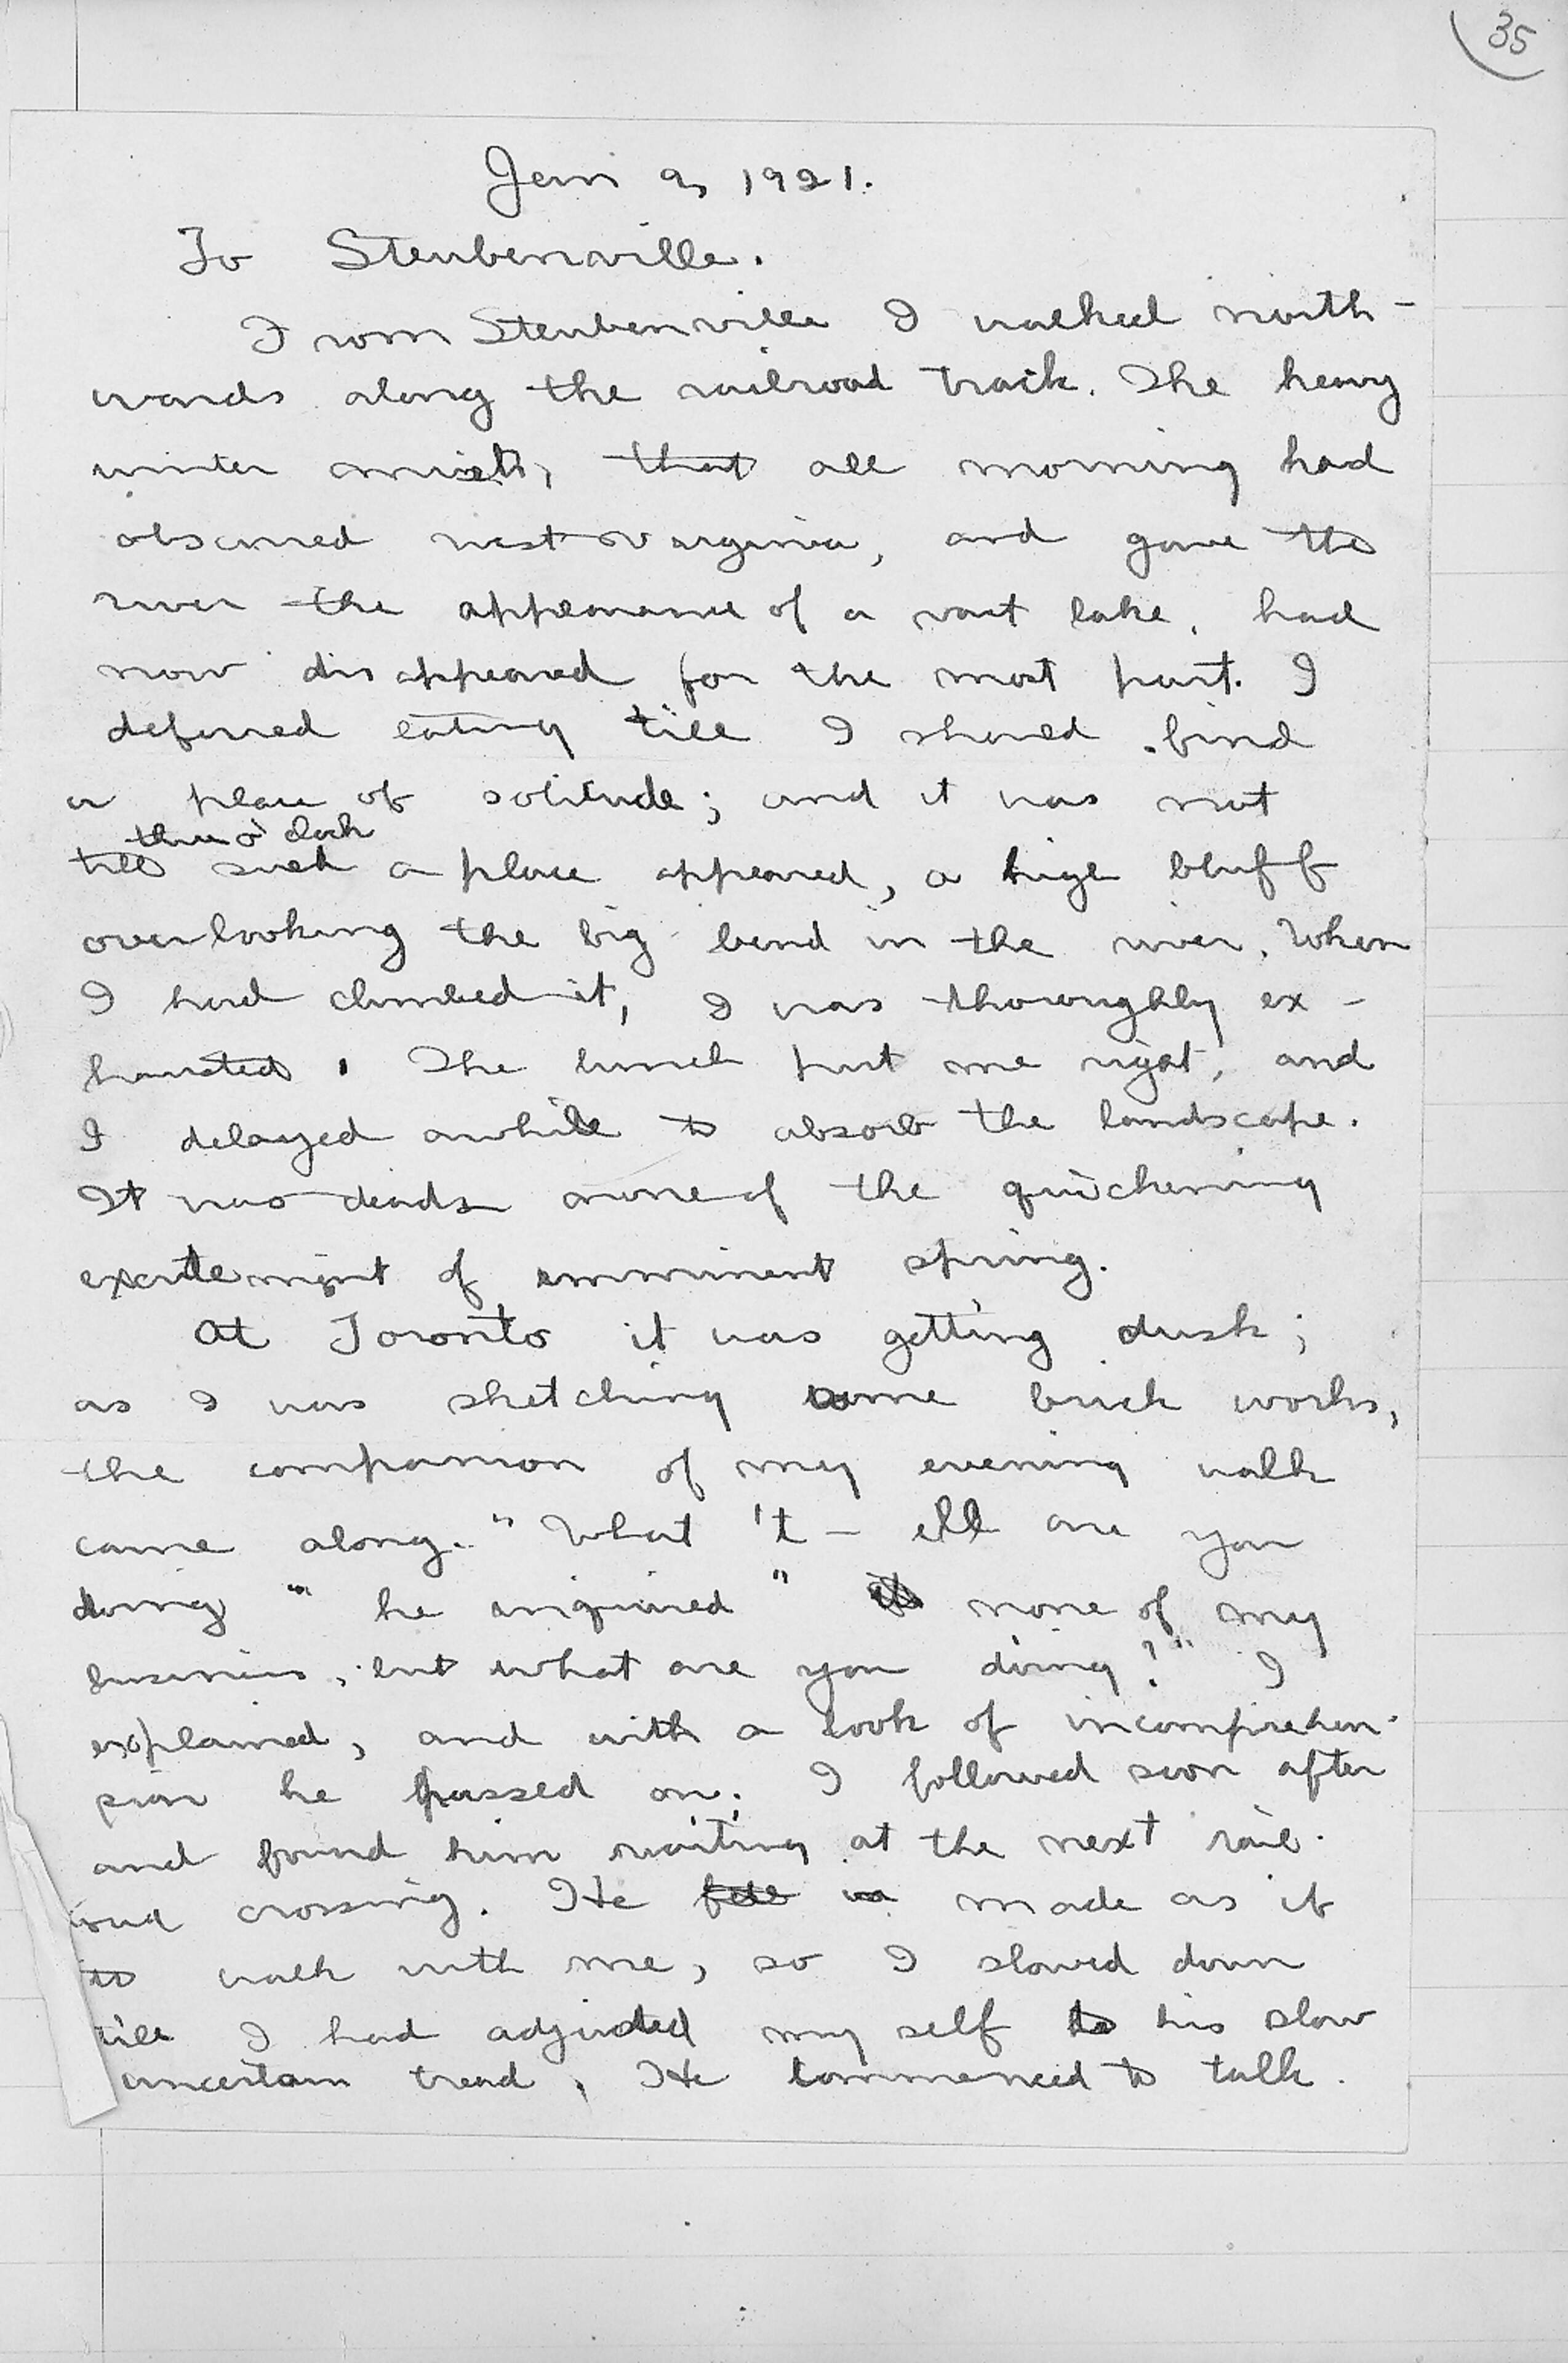 35
Jan 9, 1921.
To Steubenville.
From Steubenville I walked north-
wards along the railroad track. The heavy
winter mists, that all morning had
obscured West Virginia, and gave the
river the appearance of a vast lake, had
now disappeared for the most part. I
deferred eating till I should find
a place of solitude; and it was not
three o'clock
till such a place appeared, a huge bluff
overlooking the big bend in the river. When
I had climbed it, I was thoroughly ex-
hausted. The lunch put me right, and
I delayed awhile to absorb the landscape.
It was dead, none of the quickening
excitement of imminent spring.
At Toronto it was getting dusk;
as I was sketching some brick works,
the companion of my evening walk
came along. "What 't-ell are you
doing" he inquired " none of my
business, but what are you doing?" I
explained, and with a look of incomprehen-
sion he passed on. I followed soon after
and found him waiting at the next rail-
road crossing. He fell in made as if
to walk with me, so I slowed down
till I had adjusted my self to his slow
uncertain tread. He commenced to talk.